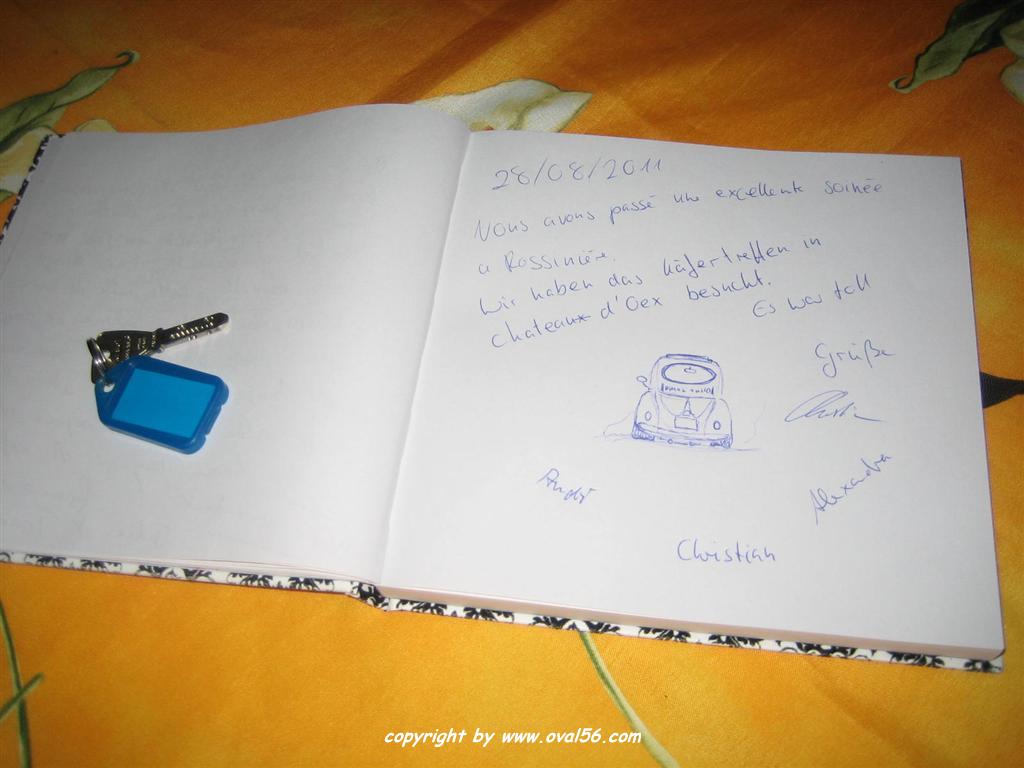 28/08/2011
Nous avons passé une excellente soirée
a Rossinière.
Wir haben das Käfertreffen in
Chateaux d'Oex besucht.
Es war toll
Grüße
Alexandra
Christian
copyright by www.oval56.com